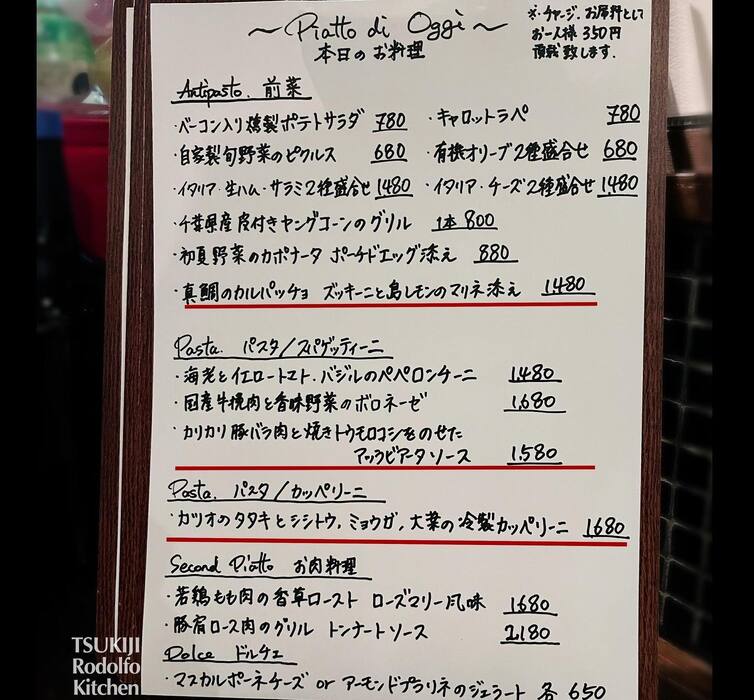 ~ Piatto di Oggi ~
本日のお料理
※・チャージ、お席料として
お一人様 350円
頂戴致します.
Antipasto. 前菜
・ベーコン入り燻製ポテトサラダ 780 ・キャロットラペ 780
・自家製旬野菜のピクルス 680 ・有機オリーブ2種盛合せ 680
・イタリア・生ハム・サラミ2種盛合せ 1480 ・イタリア・チーズ2種盛合せ 1,480
・千葉県産皮付きヤングコーンのグリル 1本 800
・初夏野菜のカポナータ ポーチドエッグ添え 880
・真鯛のカルパッチョ ズッキーニと島レモンのマリネ添え 1,480
Pasta. パスタ/スパゲッティーニ
・海老とイエロートマト.バジルのペペロンチーニ 1,480
・国産牛挽肉と香味野菜のボロネーゼ 1,680
・カリカリ豚バラ肉と焼きトウモロコシをのせた
アラビアータソース 1,580
Pasta. パスタ/カッペリーニ
・カツオのタタキとシシトウ,ミョウガ,大葉の冷製カッペリーニ 1680
Second Piatto お肉料理
・若鶏もも肉の香草ロースト ローズマリー風味 1,680
・豚肩ロース肉のグリル トンナートソース 2,180
Dolce ドルチェ
・マスカルポーネチーズ or アーモンドプラリネのジェラート 各 650
TSUKIJI
Rodolfo
Kitchen